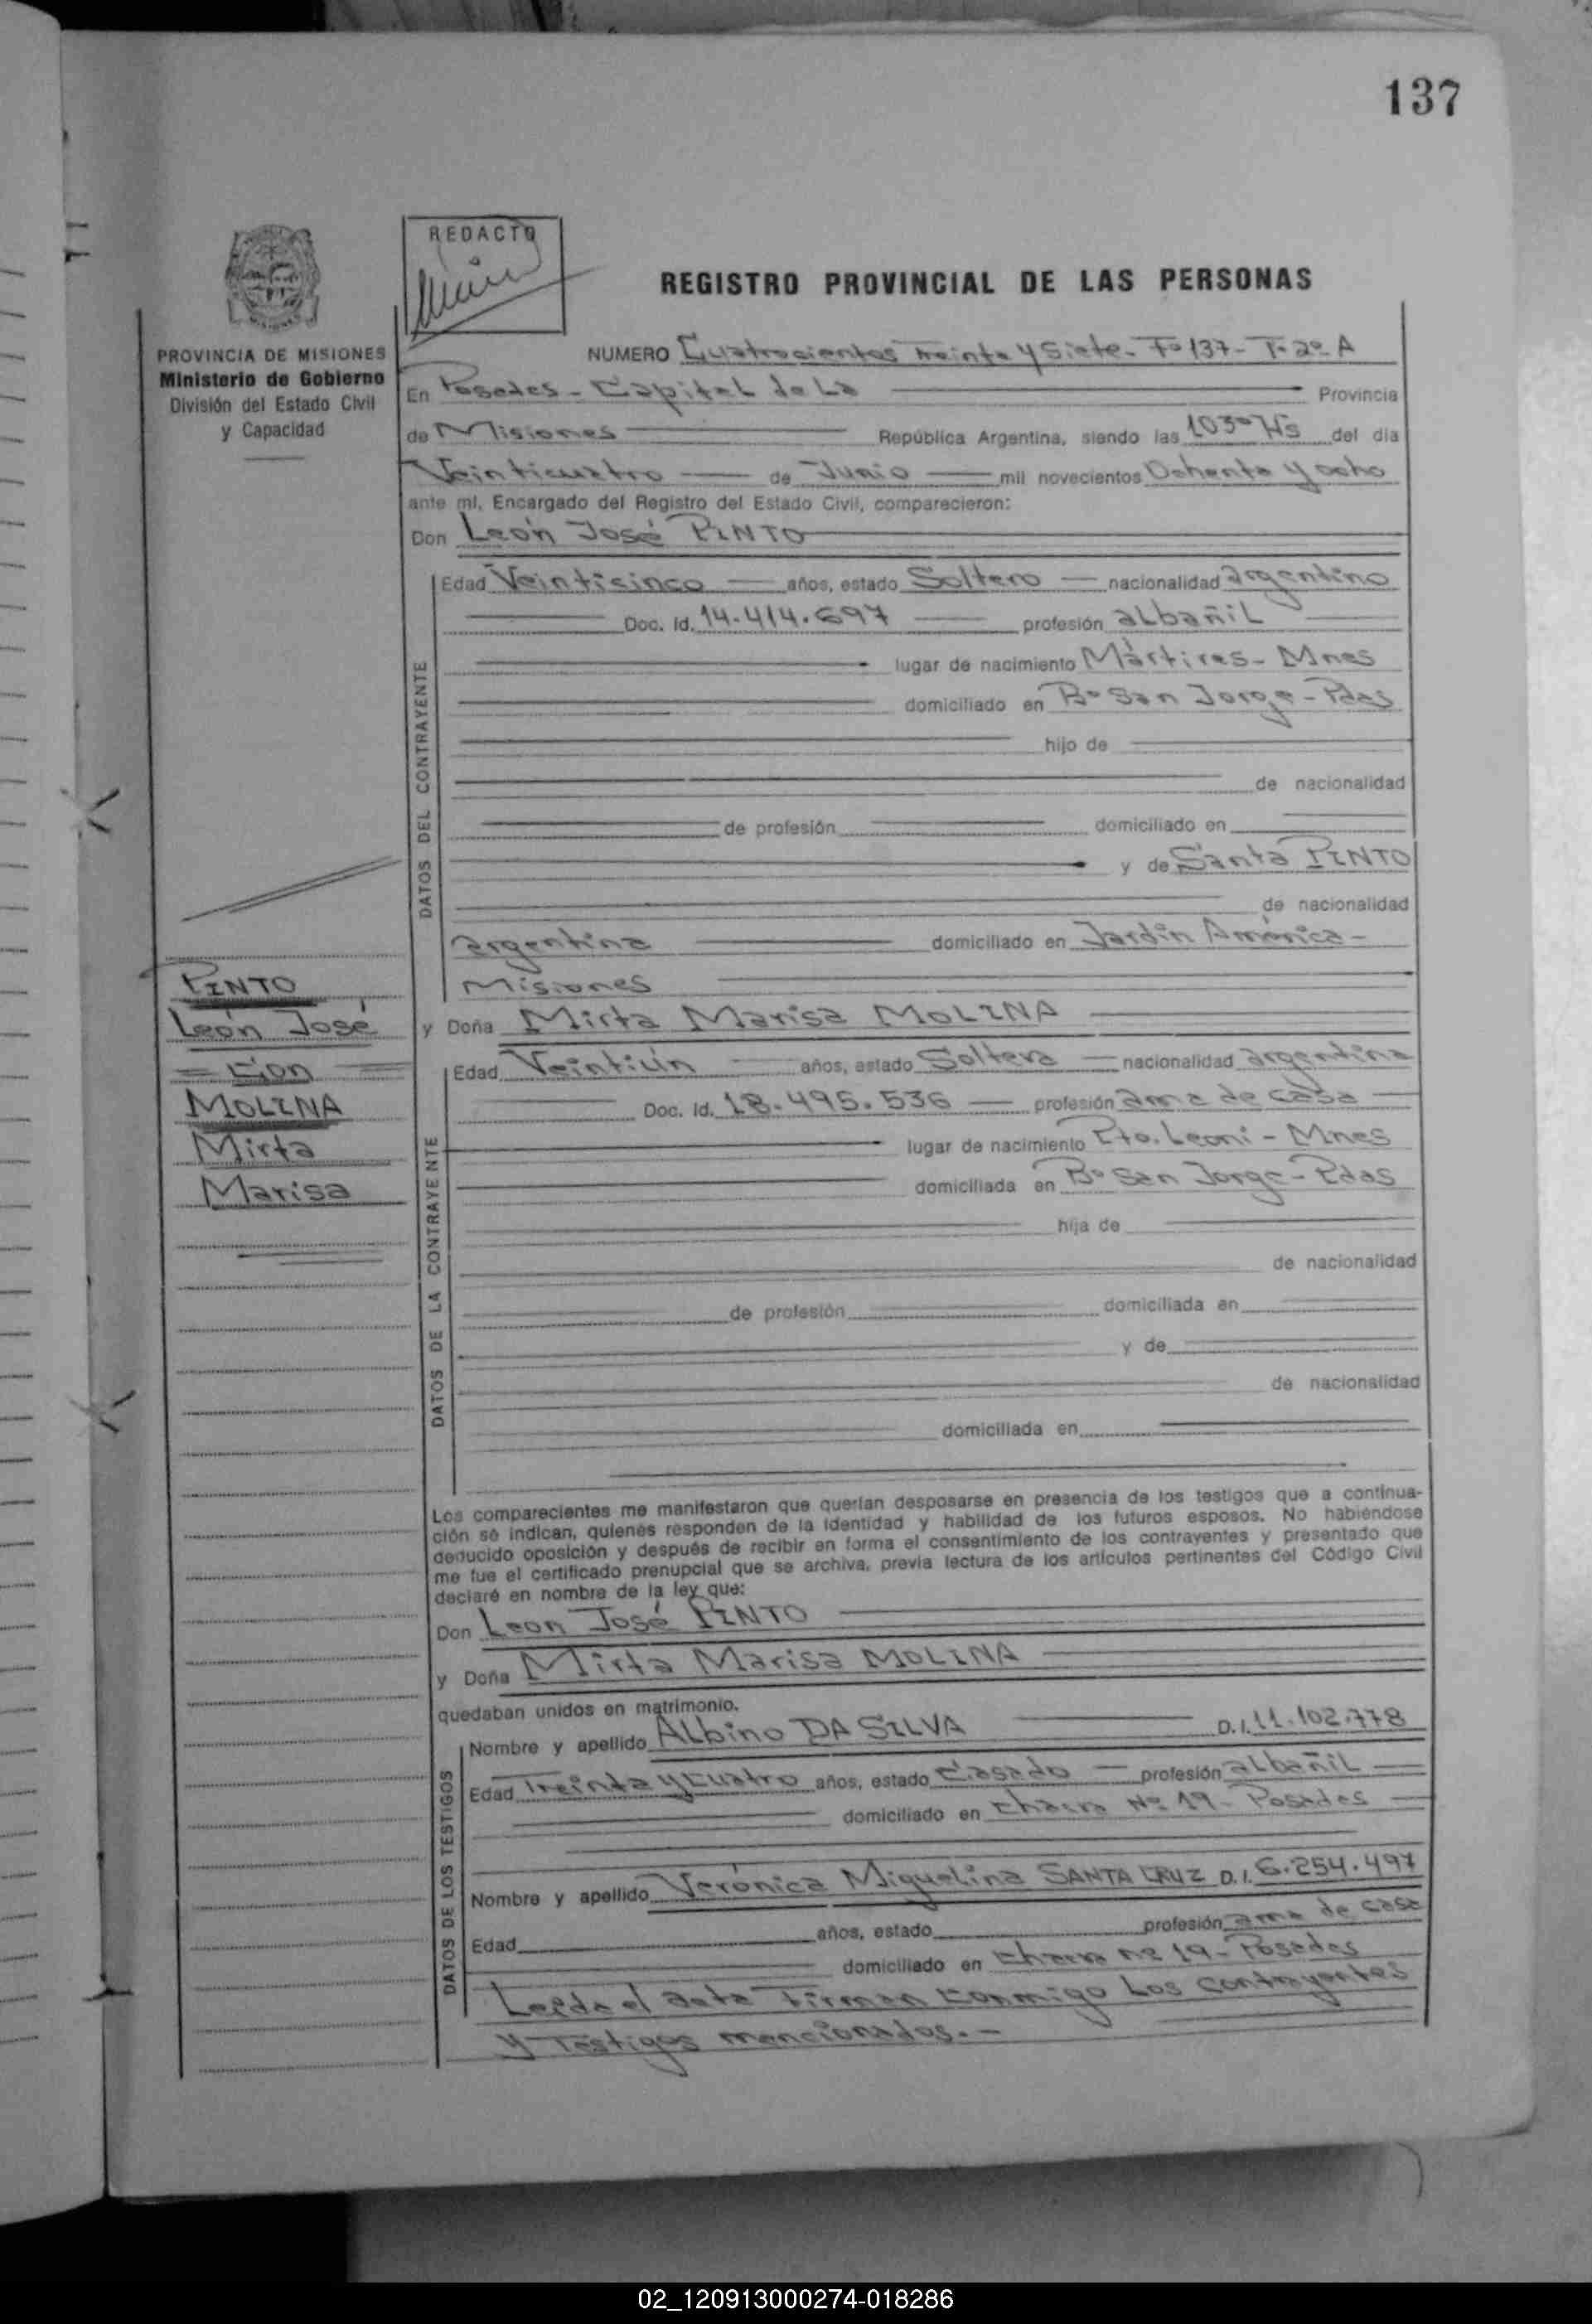 137
REDACTO
REGISTRO PROVINCIAL DE LAS PERSONAS
PROVINCIA DE MISIONES
Ministerio de Gobierno
División del Estado Civil
y Capacidad
NUMERO Cuatrocientos treinta y Siete - Fº 137 - T. 2º A
En Posadas - Capital de La Provincia
de Misiones República Argentina, siendo las 10³⁰ Hs del día
Veinticuatro de Junio mil novecientos Ochenta y ocho
ante mí, Encargado del Registro del Estado Civil, comparecieron:
Don León José PINTO
DATOS DEL CONTRAYENTE
Edad Veinticinco años, estado Soltero nacionalidad argentino
Doc. Id. 14.414.697 profesión albañil
lugar de nacimiento Mártires - Mnes
domiciliado en Bº San Jorge - Pdas
hijo de
de nacionalidad
de profesión domiciliado en
y de Santa PINTO
de nacionalidad
argentina domiciliado en Jardín América -
Misiones
PINTO
León José
= Con =
MOLINA
Mirta
Marisa
y Doña Mirta Marisa MOLINA
DATOS DE LA CONTRAYENTE
Edad Veintiún años, estado Soltera nacionalidad argentina
Doc. Id. 18.495.536 profesión ama de casa
lugar de nacimiento Pto. Leoni - Mnes
domiciliada en Bº San Jorge - Pdas
hija de
de nacionalidad
de profesión domiciliada en
y de
de nacionalidad
domiciliada en
Los comparecientes me manifestaron que querían desposarse en presencia de los testigos que a continua-
ción se indican, quienes responden de la identidad y habilidad de los futuros esposos. No habiéndose
deducido oposición y después de recibir en forma el consentimiento de los contrayentes y presentado que
me fue el certificado prenupcial que se archiva, previa lectura de los artículos pertinentes del Código Civil
declaré en nombre de la ley que:
Don Leon José PINTO
y Doña Mirta Marisa MOLINA
quedaban unidos en matrimonio.
DATOS DE LOS TESTIGOS
Nombre y apellido Albino DA SILVA D.I. 11.102.778
Edad Treinta y Cuatro años, estado Casado profesión albañil
domiciliado en Chacra Nº 19 - Posadas
Nombre y apellido Verónica Miguelina SANTA CRUZ D.I. 6.254.497
Edad años, estado profesión ama de casa
domiciliado en Chacra Nº 19 - Posadas
Leída el acta Firman Conmigo Los Contrayentes
y Testigos mencionados. -
02_120913000274-018286